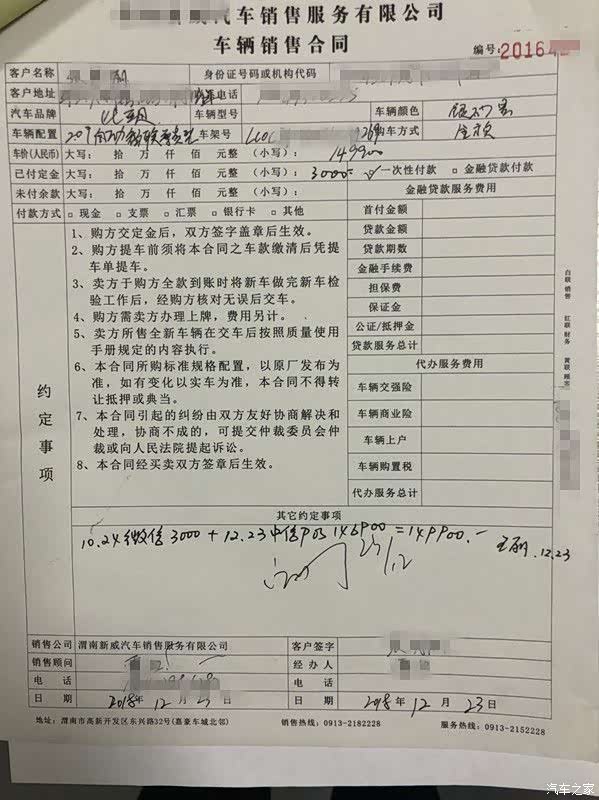 新威汽车销售服务有限公司
车辆销售合同
编号: 20164
客户名称 身份证号码或机构代码
客户地址 电话
汽车品牌 车辆型号 车辆颜色
车辆配置 车架号 购车方式 全款
车价(人民币) 大写: 拾 万 仟 佰 元整 (小写): 149900
已付定金 大写: 拾 万 仟 佰 元整 (小写): 3000 ✓一次性付款 □ 金融贷款付款
未付余款 大写: 拾 万 仟 佰 元整 (小写): 金融贷款服务费用
付款方式 □ 现金 □ 支票 □ 汇票 □ 银行卡 □ 其他 首付金额
约定事项
1、购方交定金后,双方签字盖章后生效。
2、购方提车前须将本合同之车款缴清后凭提
车单提车。
3、卖方于购方全款到账时将新车做完新车检
验工作后,经购方核对无误后交车。
4、购方需卖方办理上牌,费用另计。
5、卖方所售全新车辆在交车后按照质量使用
手册规定的内容执行。
6、本合同所购标准规格配置,以原厂发布为
准,如有变化以实车为准,本合同不得转
让抵押或典当。
7、本合同引起的纠纷由双方友好协商解决和
处理,协商不成的,可提交仲裁委员会仲
裁或向人民法院提起诉讼。
8、本合同经买卖双方签章后生效。
贷款金额
贷款期数
金融手续费
担保费
保证金
公证/抵押金
贷款服务总计
代办服务费用
车辆交强险
车辆商业险
车辆上户
车辆购置税
代办服务总计
白联 销售 红联 财务 黄联 顾客
其它约定事项
10.24微信3000+12.23中信POS146900=149900.-
12.23
23/12
销售公司 渭南新威汽车销售服务有限公司 客户签字
销售顾问 经办人
电话 电话
日期 2018年12月23日 日期 2018年12月23日
地址: 渭南市高新开发区东兴路32号(嘉豪车城北邻) 销售热线: 0913-2182228 服务热线: 0913-2152228
汽车之家